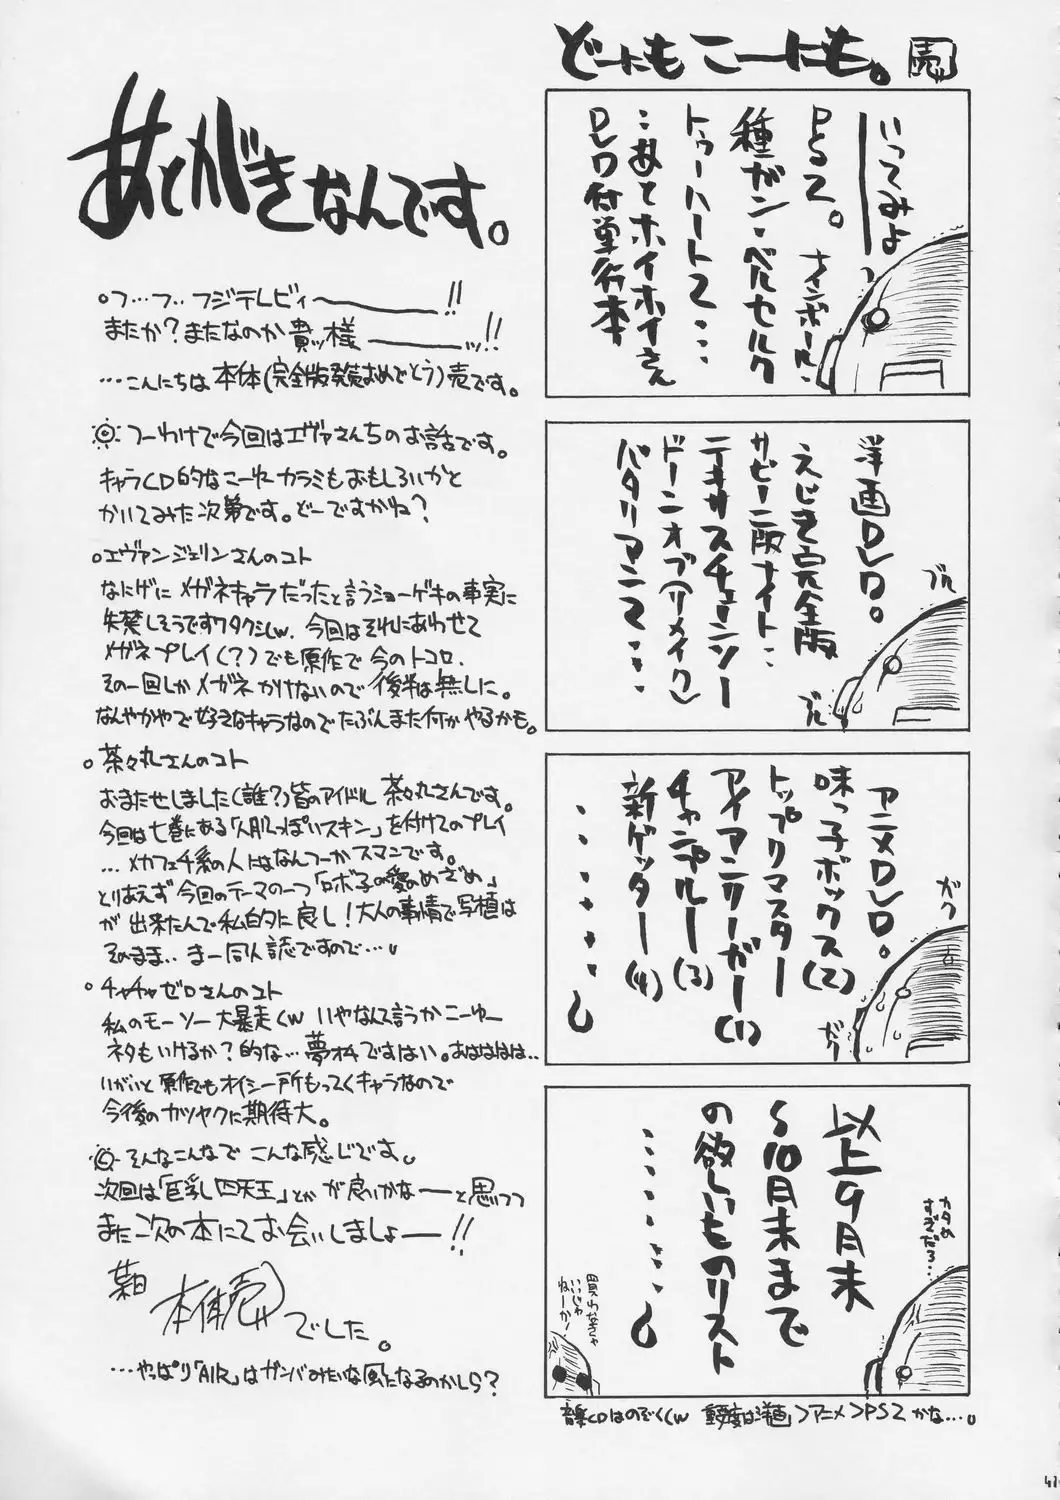 あとがきなんです。
○フ…フ‥フジテレビィ〜――――!!
またか？またなのか貴ッ様――――ッ!!
…こんにちは本体(完全版発売おめでとう)売です。
つーわけで今回はエヴァさんちのお話です。
キャラCD的なこーゆーカラミもおもしろいかと
かいてみた次第です。どーですかね？
○エヴァンジェリンさんのコト
なにげにメガネキャラだったと言うショーゲキの事実に
失禁しそうですワタクシ(w. 今回はそれにあわせて
メガネプレイ(？)でも原作で今のトコロ.
その一回しかメガネかけないので後半は無しに。
なんやかやで好きなキャラなのでたぶんまた何かやるかも。
○茶々丸さんのコト
おまたせしました(誰？)皆のアイドル茶々丸さんです。
今回は七巻にある「人肌っぽいスキン」を付けてのプレイ
…メカフェチ系の人にはなんつーかスマンです。
とりあえず今回のテーマの一つ「ロボ子の愛のめざめ」
が出来たんで私的に良し！大人の事情で写植は
そのまま‥まー同人誌ですので…。
○チャチャゼロさんのコト
私のモーソー大暴走(w いやなんて言うかこーゆー
ネタもいけるか？的な…夢オチですはい。あはははは‥
いがいと原作でもオイシー所もってくキャラなので
今後のカツヤクに期待大。
そんなこんなでこんな感じです。
次回は「巨乳四天王」とかが良いかな――と思いつつ
また次の本にてお会いしましょ――!!
本体売でした。
…やっぱり「AIR」はガンバみたいな風になるのかしら？
どーにもこーにも。 売
いってみよ――
PS2。ナインボール・
種ガン・ベルセルク
トゥーハート2…
…あとホイホイさん
DVD付単行本
洋画DVD。
えじき完全版
サビーニ版ナイト‥
テキサスチェーンソー
ドーンオブ(リメイク)
バタリアン2…
ブル
ブル
アニメDVD。
味っ子ボックス(2)
トップリマスター
アイアンリーガー(1)
チャンプルー(3)
新ゲッター(4)
……。
ガク
ガク
以上9月末
〜10月末まで
の欲しいものリスト
……。
カタめ
すぎだろ…
買わなきゃ
いいじゃ
ねーかー
音楽CDはのぞく(w 重要度は洋画＞アニメ＞PS2かな…。
41